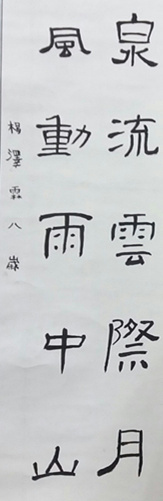 泉流雲際月
風動雨中山
楊澤霖八歲